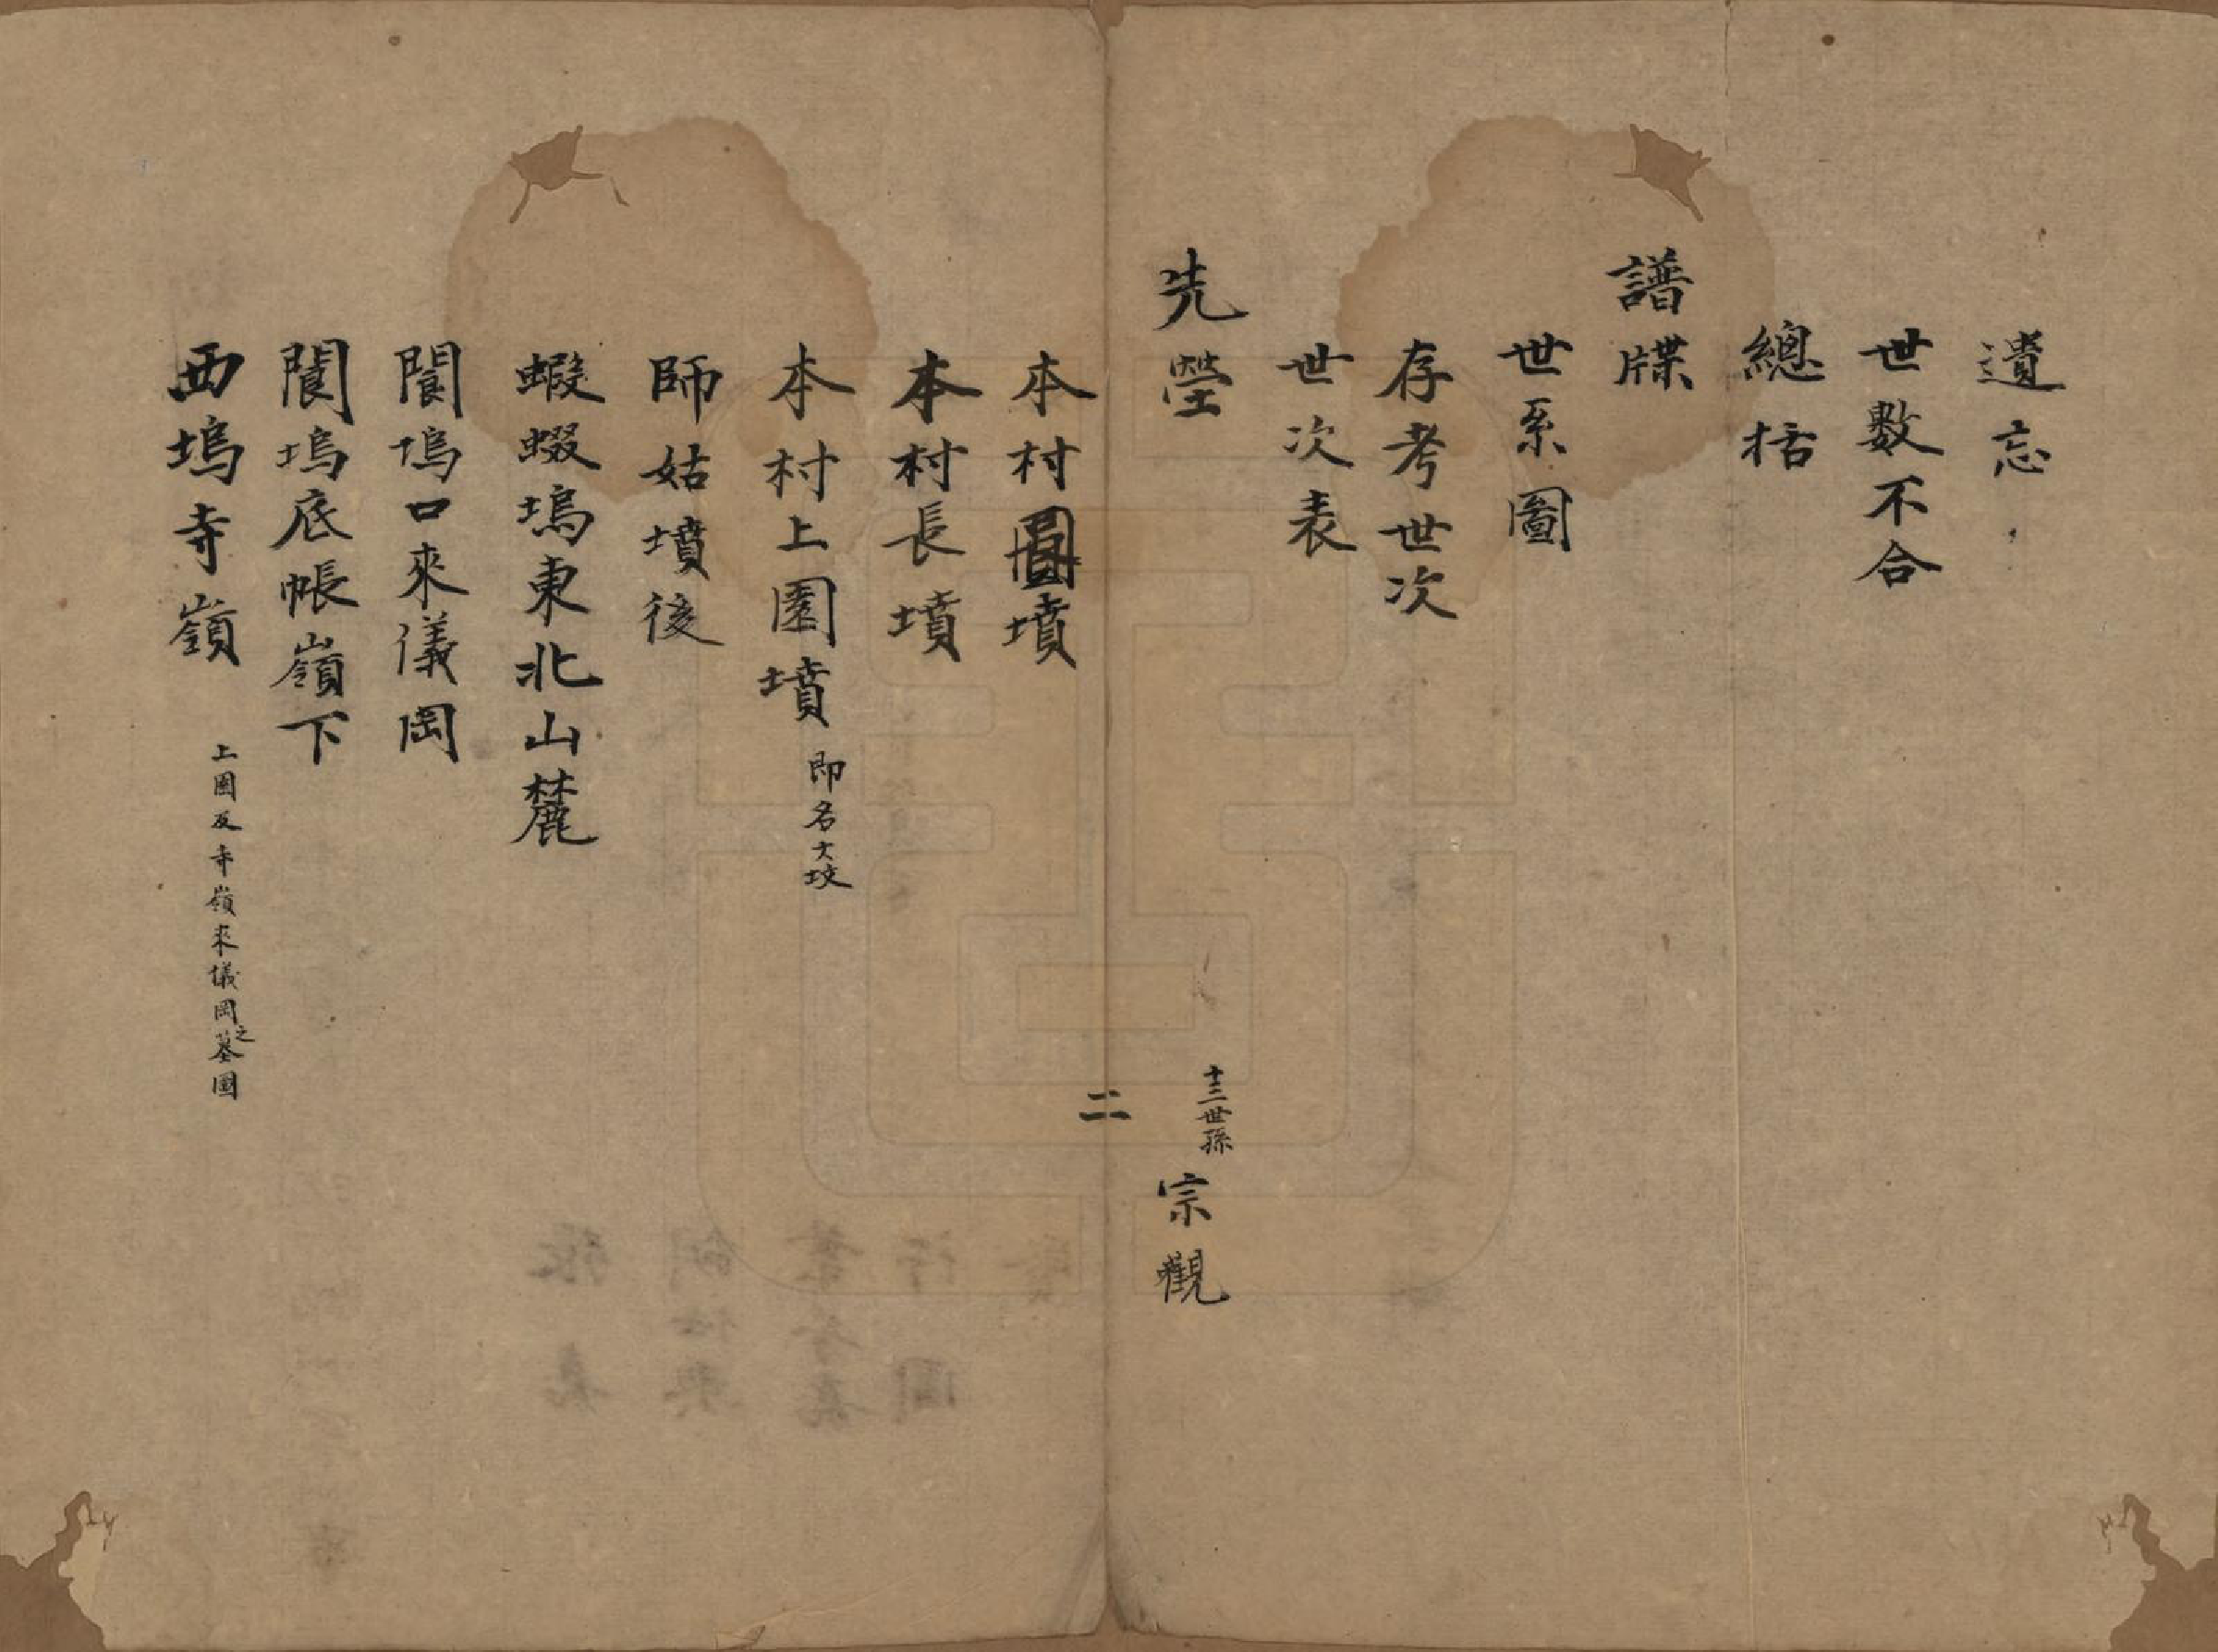 遺忘
世數不合
總括
譜牒
世系圖
存考世次
世次表
先塋 十三世孫 宗觀
二
本村圓墳
本村長墳
本村上園墳 即名大坟
師姑墳後
蝦蝃塢東北山麓
閬塢口來儀岡
閬塢底帳嶺下
西塢寺嶺 上圖及寺嶺來儀岡之墓圖